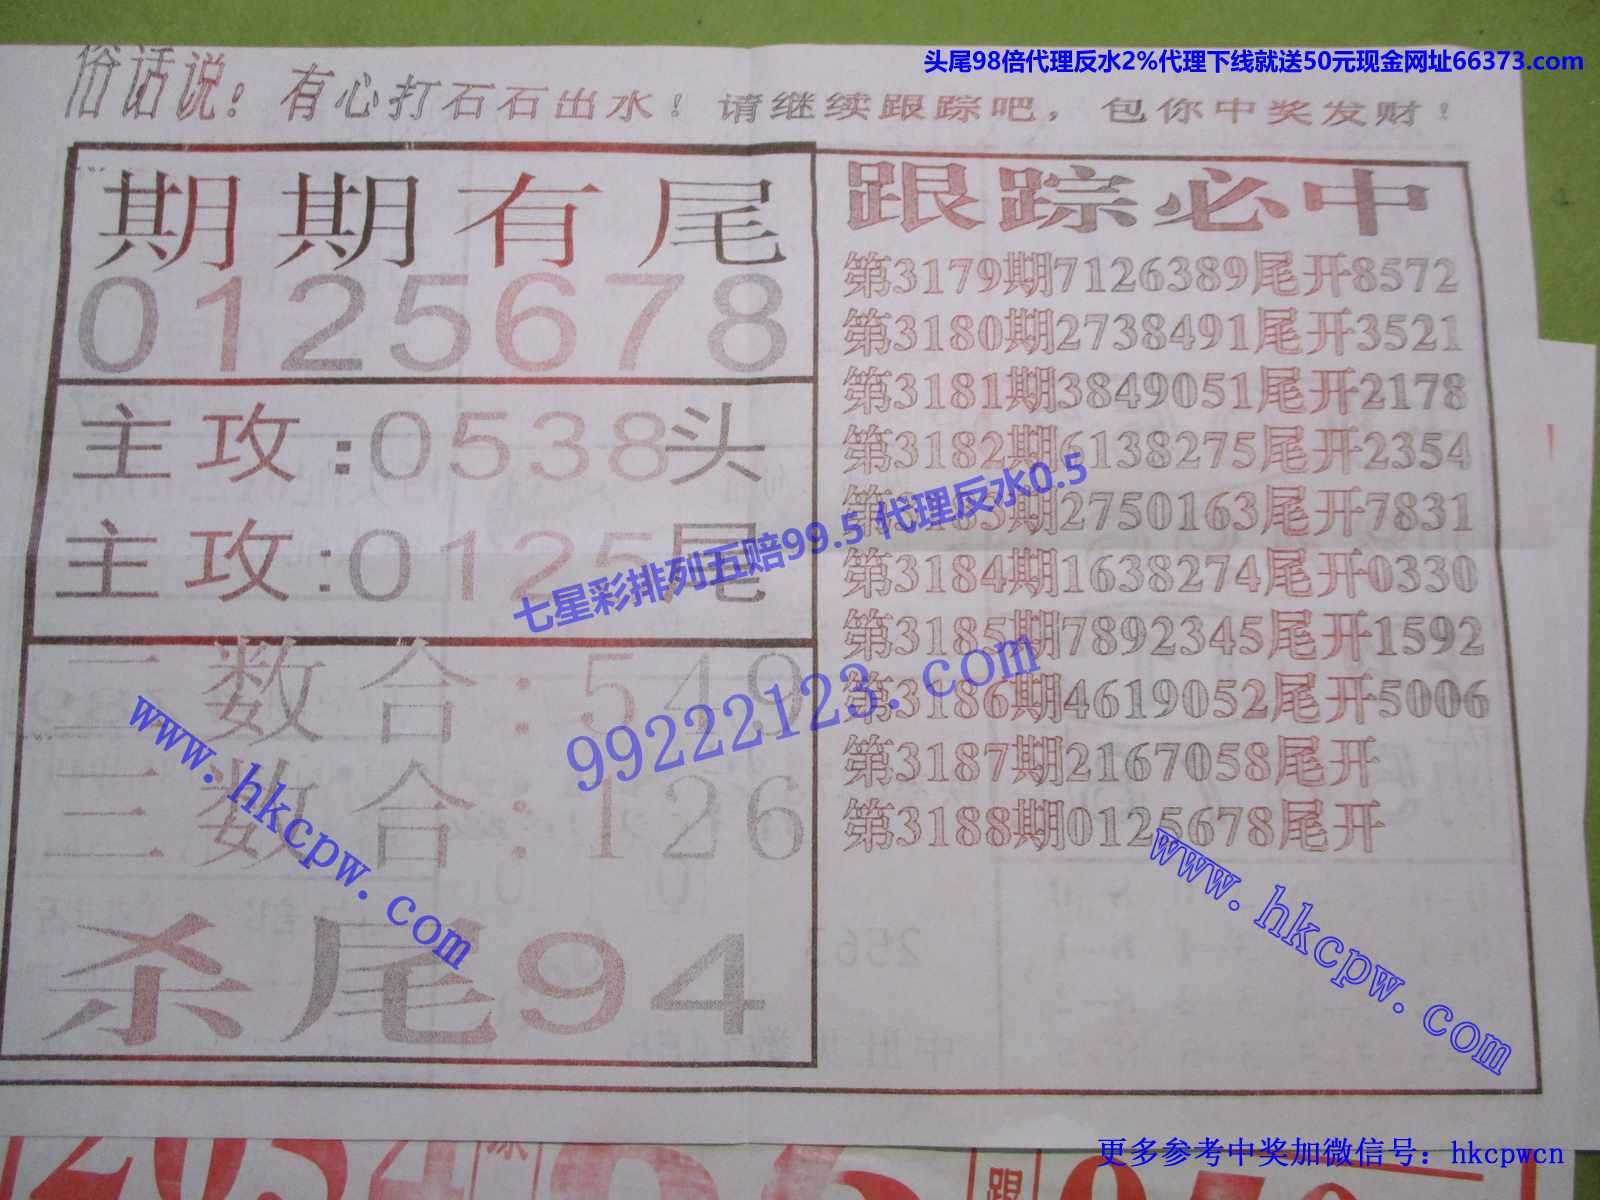 头尾98倍代理反水2%代理下线就送50元现金网址66373.com
俗话说：有心打石石出水！请继续跟踪吧，包你中奖发财！
期期有尾
0125678
主攻:0538头
主攻:0125尾
二数合:549
三数合:126
杀尾94
跟踪必中
第3179期7126389尾开8572
第3180期2738491尾开3521
第3181期3849051尾开2178
第3182期6138275尾开2354
第3183期2750163尾开7831
第3184期1638274尾开0330
第3185期7892345尾开1592
第3186期4619052尾开5006
第3187期2167058尾开
第3188期0125678尾开
七星彩排列五赔99.5 代理反水0.5
99222123.com
www.hkcpw.com
www.hkcpw.com
更多参考中奖加微信号：hkcpwcn
跟